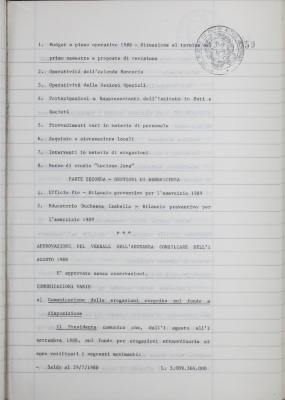 1. Budget e piano operativo 1988 - Situazione al termine del
primo semestre e proposte di revisione
2. Operatività dell'azienda Bancaria
3. Operatività delle Sezioni Speciali
4. Partecipazioni e Rappresentanti dell'Istituto in Enti e
Società
5. Provvedimenti vari in materia di personale
6. Acquisto e sistemazione locali
7. Interventi in materia di erogazioni
8. Borse di studio "Luciano Jona"
PARTE SECONDA - GESTIONI DI BENEFICENZA
1. Ufficio Pio - Bilancio preventivo per l'esercizio 1989
2. Educatorio Duchessa Isabella - Bilancio preventivo per
l'esercizio 1989
* * *
APPROVAZIONE DEL VERBALE DELL'ADUNANZA CONSILIARE DELL'1
AGOSTO 1988
E' approvato senza osservazioni.
COMUNICAZIONI VARIE
a) Comunicazione delle erogazioni eseguite sul fondo a
disposizione
Il Presidente comunica che, dall'1 agosto all'1
settembre 1988, sul fondo per erogazioni straordinarie si
sono verificati i seguenti movimenti:
- Saldo al 29/7/1988 L. 3.099.366.000